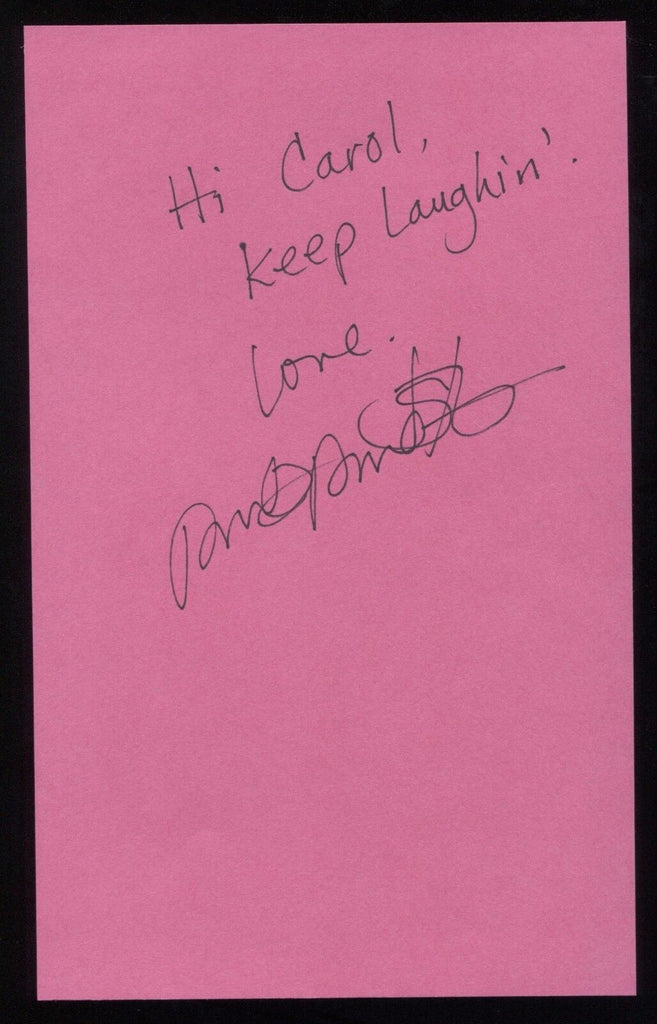 Hi Carol,
Keep Laughin'.
Love.